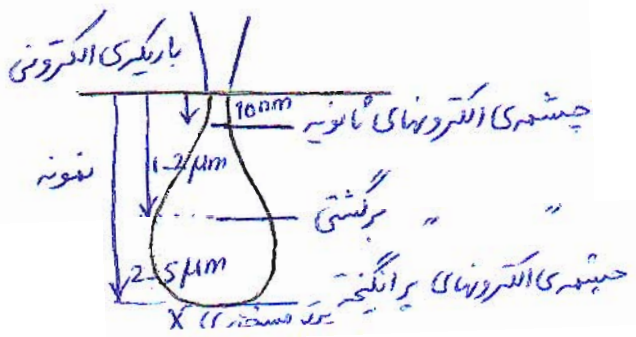 باریکه‌ی الکترونی
10nm
چشمه‌ی الکترونهای ثانویه
1-2μm
نمونه
" " برگشتی
2-5μm
چشمه‌ی الکترونهای برانگیخته
X